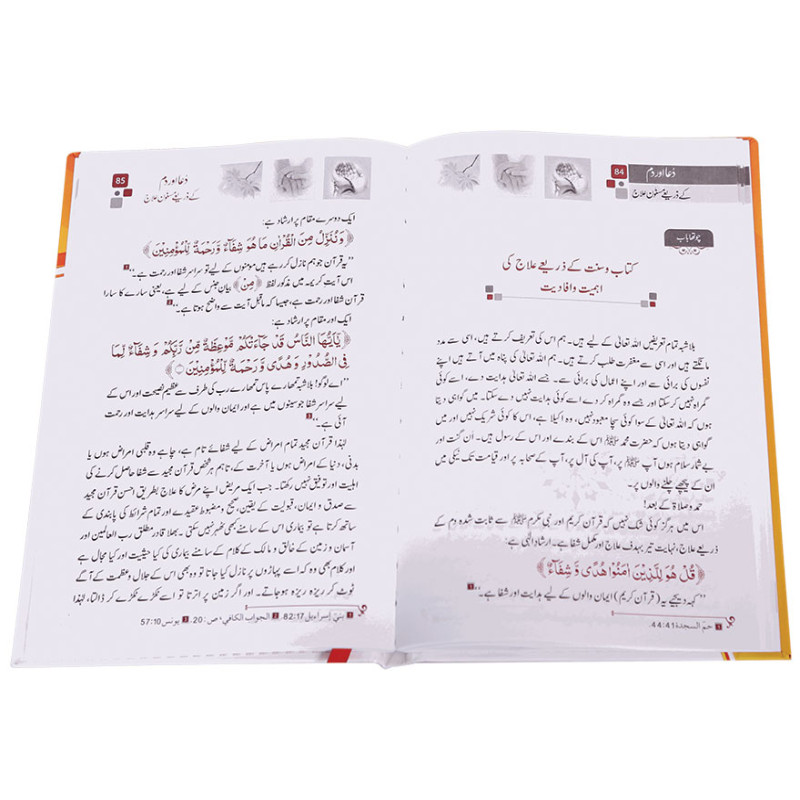 84
دُعا اور دَم
کے ذریعے مسنون علاج
چوتھا باب
کتاب و سنت کے ذریعے علاج کی
اہمیت و افادیت
بلاشبہ تمام تعریفیں اللہ تعالیٰ کے لیے ہیں۔ ہم اس کی تعریف کرتے ہیں، اسی سے مدد
مانگتے ہیں اور اسی سے مغفرت طلب کرتے ہیں۔ ہم اللہ تعالیٰ کی پناہ میں آتے ہیں اپنے
نفسوں کی برائی سے اور اپنے اعمال کی برائی سے۔ جسے اللہ تعالیٰ ہدایت دے، اسے کوئی
گمراہ نہیں کرسکتا اور جسے وہ گمراہ کر دے اسے کوئی ہدایت نہیں دے سکتا۔ میں گواہی دیتا
ہوں کہ اللہ تعالیٰ کے سوا کوئی سچا معبود نہیں، وہ اکیلا ہے، اس کا کوئی شریک نہیں اور میں
گواہی دیتا ہوں کہ حضرت محمد ﷺ اس کے بندے اور اس کے رسول ہیں۔ اَن گنت اور
بے شمار سلام ہوں آپ ﷺ پر، آپ کی آل پر، آپ کے صحابہ پر اور قیامت تک نیکی میں
ان کے پیچھے چلنے والوں پر۔
حمد و صلاۃ کے بعد!
اس میں ہرگز کوئی شک نہیں کہ قرآن کریم اور نبی مکرم ﷺ سے ثابت شدہ دم کے
ذریعے علاج، نہایت تیر بہدف علاج اور مکمل شفا ہے۔ ارشادِ الٰہی ہے:
﴿قُلْ هُوَ لِلَّذِيْنَ اٰمَنُوْا هُدًى وَّ شِفَآءٌ﴾
’’کہہ دیجیے یہ (قرآن کریم) ایمان والوں کے لیے ہدایت اور شفا ہے۔‘‘ 1
1 حمٓ السجدة 44:41.
85
دُعا اور دَم
کے ذریعے مسنون علاج
ایک دوسرے مقام پر ارشاد ہے:
﴿وَ نُنَزِّلُ مِنَ الْقُرْاٰنِ مَا هُوَ شِفَآءٌ وَّ رَحْمَةٌ لِّلْمُؤْمِنِيْنَ﴾
’’یہ قرآن جو ہم نازل کر رہے ہیں مومنوں کے لیے تو سراسر شفا اور رحمت ہے۔‘‘ 1
اس آیت کریمہ میں مذکور لفظ ﴿مِنْ﴾ بیانِ جنس کے لیے ہے، یعنی سارے کا سارا
قرآن شفا اور رحمت ہے، جیسا کہ ماقبل آیت سے واضح ہوتا ہے۔ 2
ایک اور مقام پر ارشاد ہے:
﴿يٰۤاَيُّهَا النَّاسُ قَدْ جَآءَتْكُمْ مَّوْعِظَةٌ مِّنْ رَّبِّكُمْ وَ شِفَآءٌ لِّمَا
فِي الصُّدُوْرِ وَ هُدًى وَّ رَحْمَةٌ لِّلْمُؤْمِنِيْنَ﴾
’’اے لوگو! بلاشبہ تمھارے پاس تمھارے رب کی طرف سے عظیم نصیحت اور اس کے
لیے سراسر شفا جو سینوں میں ہے اور ایمان والوں کے لیے سراسر ہدایت اور رحمت
آئی ہے۔‘‘ 3
لہٰذا قرآن مجید تمام امراض کے لیے شفائے تام ہے، چاہے وہ قلبی امراض ہوں یا
بدنی، دنیا کے امراض ہوں یا آخرت کے، تاہم ہر شخص قرآن مجید سے شفا حاصل کرنے کی
اہلیت اور توفیق نہیں رکھتا۔ جب ایک مریض اپنے مرض کا علاج بطریق احسن قرآن مجید
سے صدق و ایمان، قبولیت کے یقین، صحیح و مضبوط عقیدے اور تمام شرائط کی پابندی کے
ساتھ کرتا ہے تو بیماری اس کے سامنے کبھی ٹھہر نہیں سکتی۔ بھلا قادرِ مطلق رب العالمین اور
آسمان و زمین کے خالق و مالک کے کلام کے سامنے بیماری کی کیا حیثیت اور کیا مجال ہے
اور کلام بھی وہ کہ اسے پہاڑوں پر نازل کیا جاتا تو وہ بھی اس کے جلال و عظمت کے آگے
ٹوٹ کر ریزہ ریزہ ہو جاتے۔ اور اگر زمین پر اترتا تو اسے ٹکڑے ٹکڑے کر ڈالتا، لہٰذا
1 بنيٓ إسراءيل 82:17. 2 الجواب الكافي، ص: 20. 3 يونس 57:10